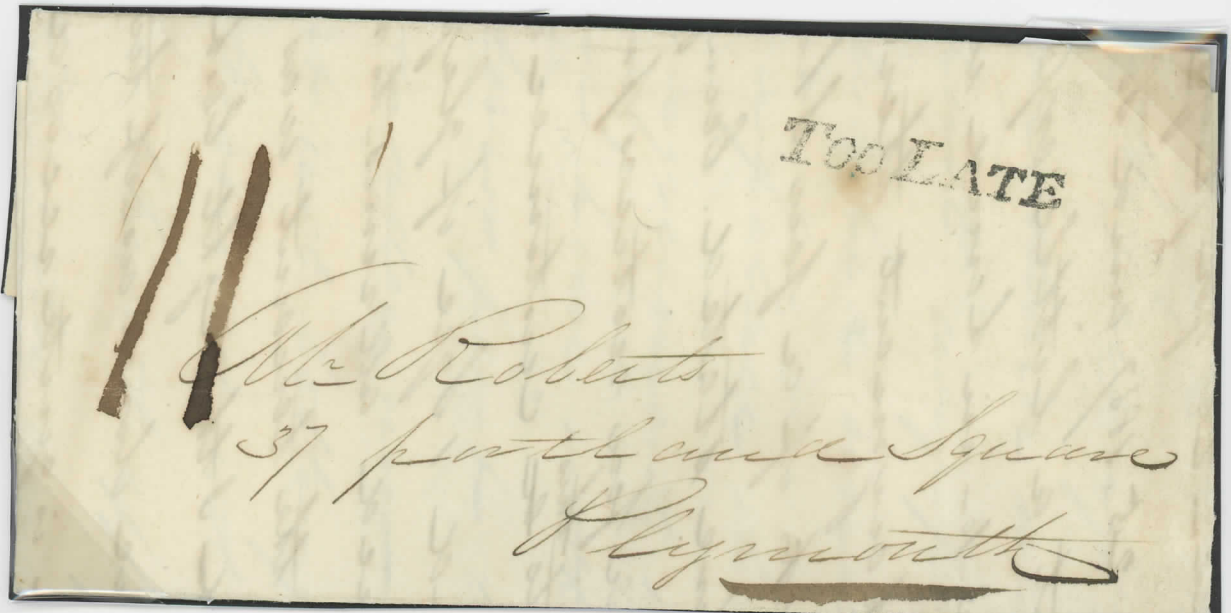 Too LATE
11
Mr Roberts
37 portland Square
Plymouth